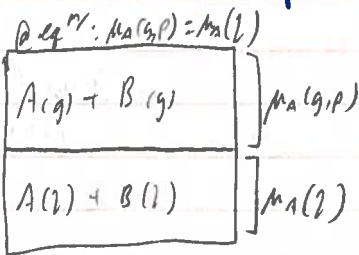 @ eqᵐ: μA(g,p) = μA(l)
A(g) + B(g)
μA(g,p)
A(l) + B(l)
μA(l)